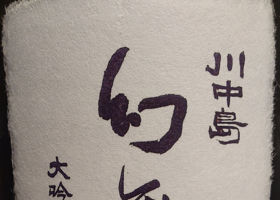 川中島
幻
大吟